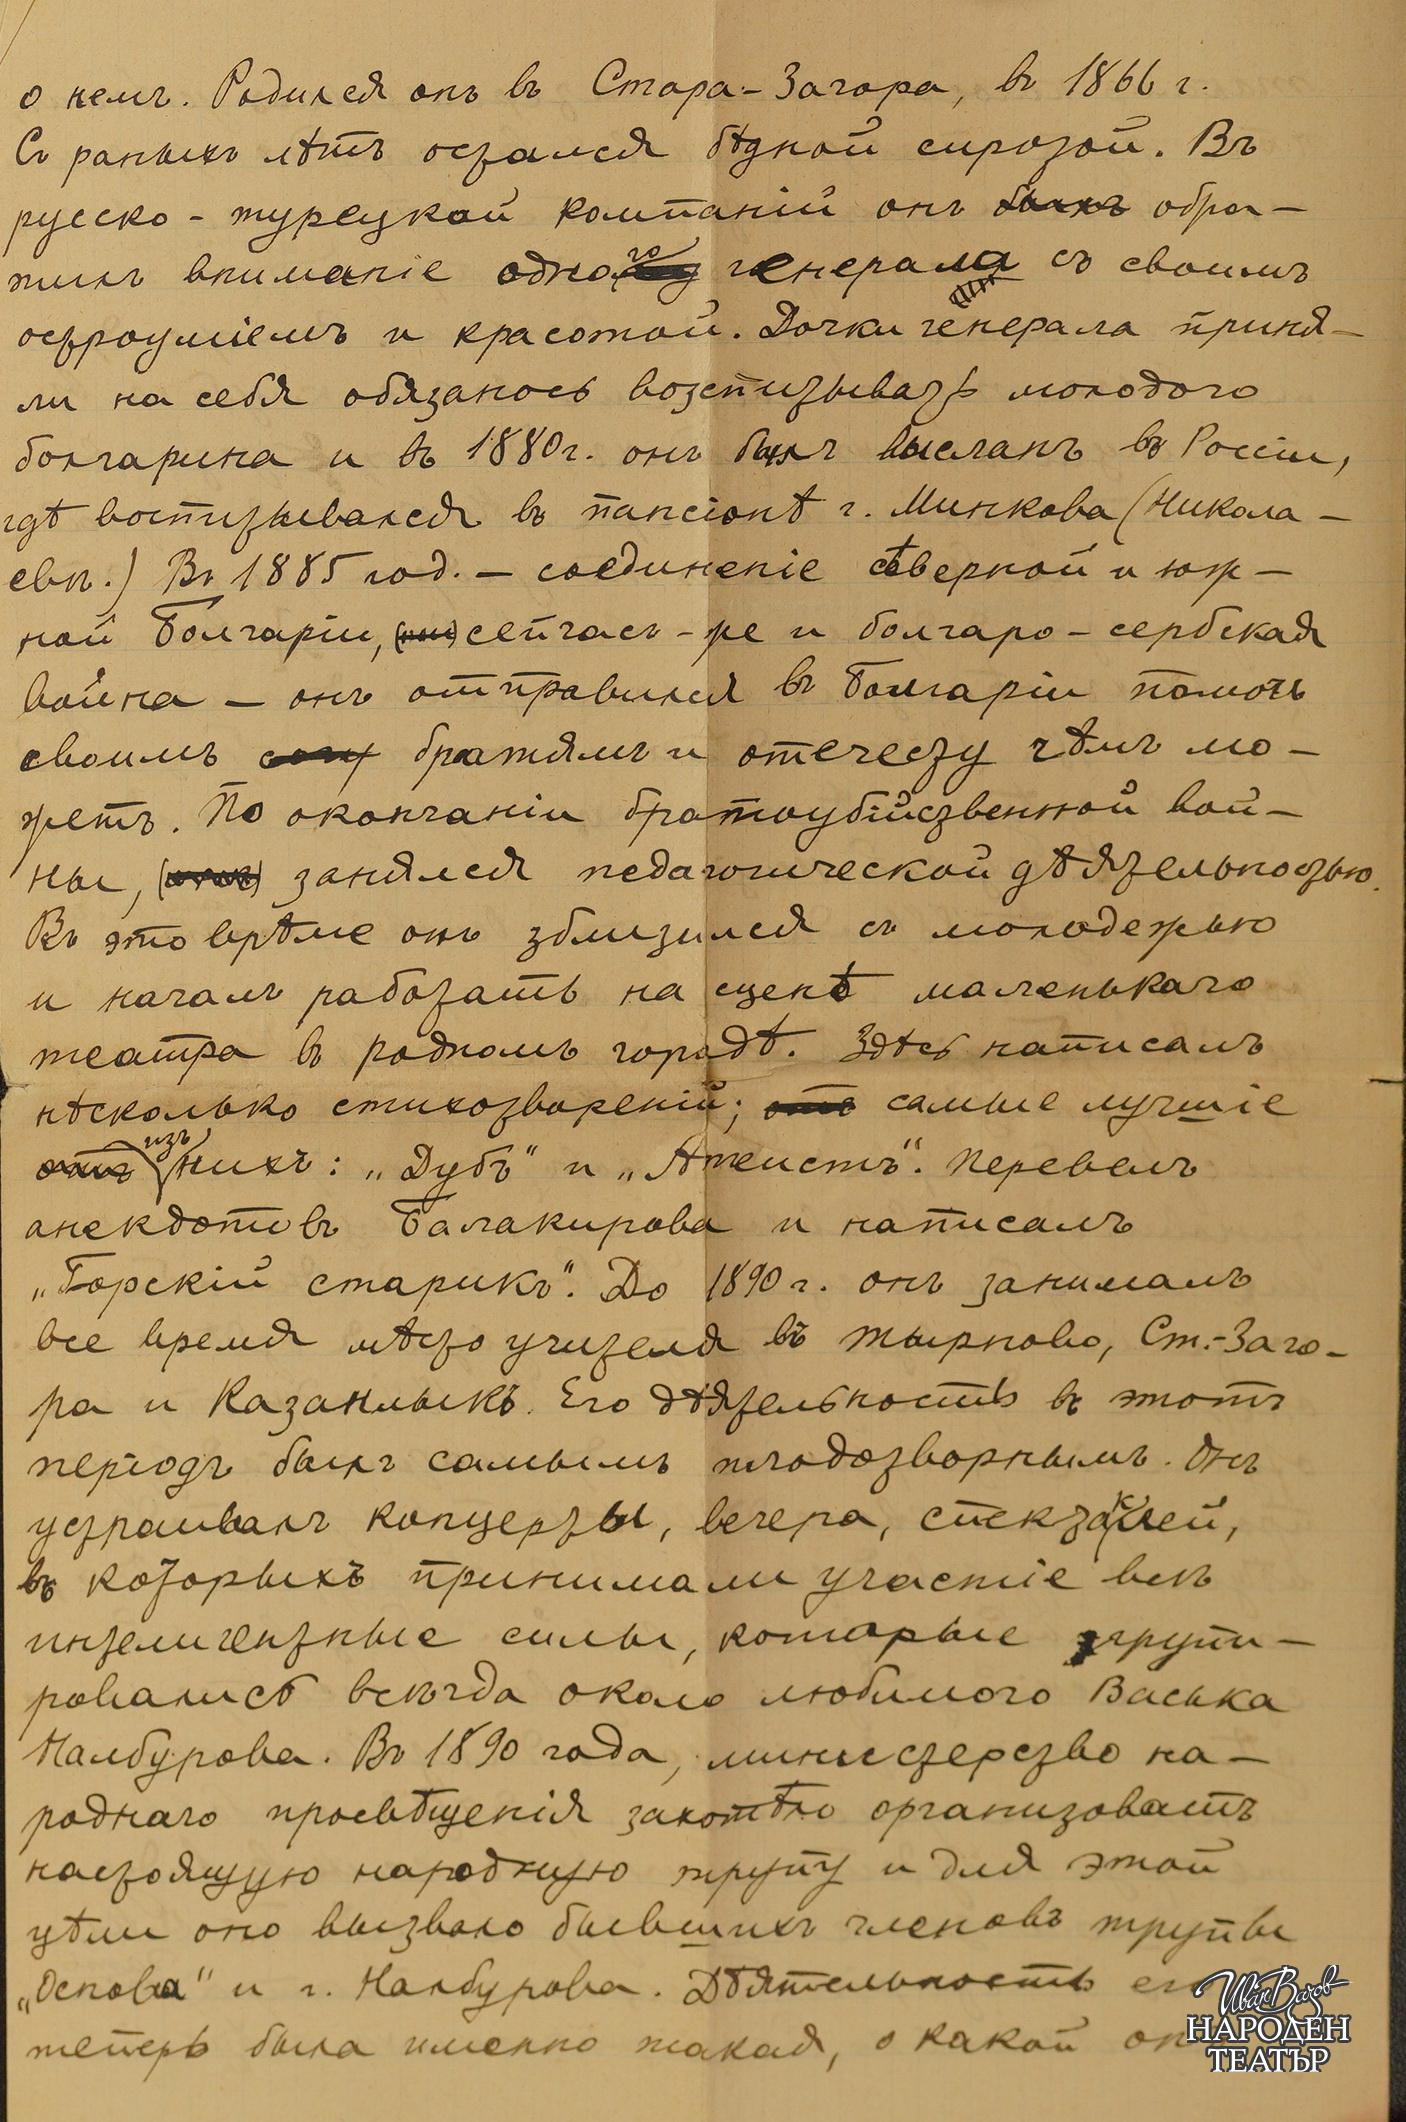 о немъ. Родился онъ въ Стара-Загора, въ 1866 г.
Съ раныхъ лѣтъ остался бѣдной сиротой. Въ
русско-турецкой компаніи онъ былъ обра-
тилъ вниманіе одного генерала съ своимъ
остроуміемъ и красотой. Дочки генерала приня-
ли на себя обязаность возспитывать молодого
болгарина и въ 1880 г. онъ былъ высланъ въ Россіи,
гдѣ воспитывался въ пансіонѣ г. Минкова (Никола-
евъ.) Въ 1885 год. – соединеніе сѣверной и юж-
ной Болгаріи, сейчасъ-же и болгаро-сербская
война – онъ отправился въ Болгаріи помочь
своимъ братямъ и отечеству чѣмъ мо-
жетъ. По окончаніи братоубійственной вой-
ны, (онъ) занялся педагогической дѣятельностью.
Въ это врѣме онъ зблизился съ молодежью
и началъ работать на сценѣ маленькаго
театра въ родномъ городѣ. Здѣсь написалъ
нѣсколько стихотвореній; отъ самые лучшіе
отъ изъ нихъ: „Дубъ" и „Атеистъ". Перевелъ
анекдотовъ Балакирова и написалъ
„Горскій старикъ". До 1890 г. онъ занималъ
все время мѣсто учителя въ Тырново, Ст.-Заго-
ра и Казанлыкъ. Его дѣятельность въ этотъ
періодъ былъ самымъ плодотворнымъ. Онъ
устраивалъ концерты, вечера, спектаклей,
въ которыхъ принимали участіе всѣ
интелигентные силы, которые групи-
ровались всегда около любимого Васька
Налбурова. Въ 1890 года, министерство на-
роднаго просвѣщенія захотѣло организовать
настоящую народную трупу и для этой
цѣли оно вызвало бывшихъ членовъ трупы
„Основа" и г. Налбурова. Дѣятельность
теперь была именно такая, о какой
Иван Вазов
НАРОДЕН
ТЕАТЪР